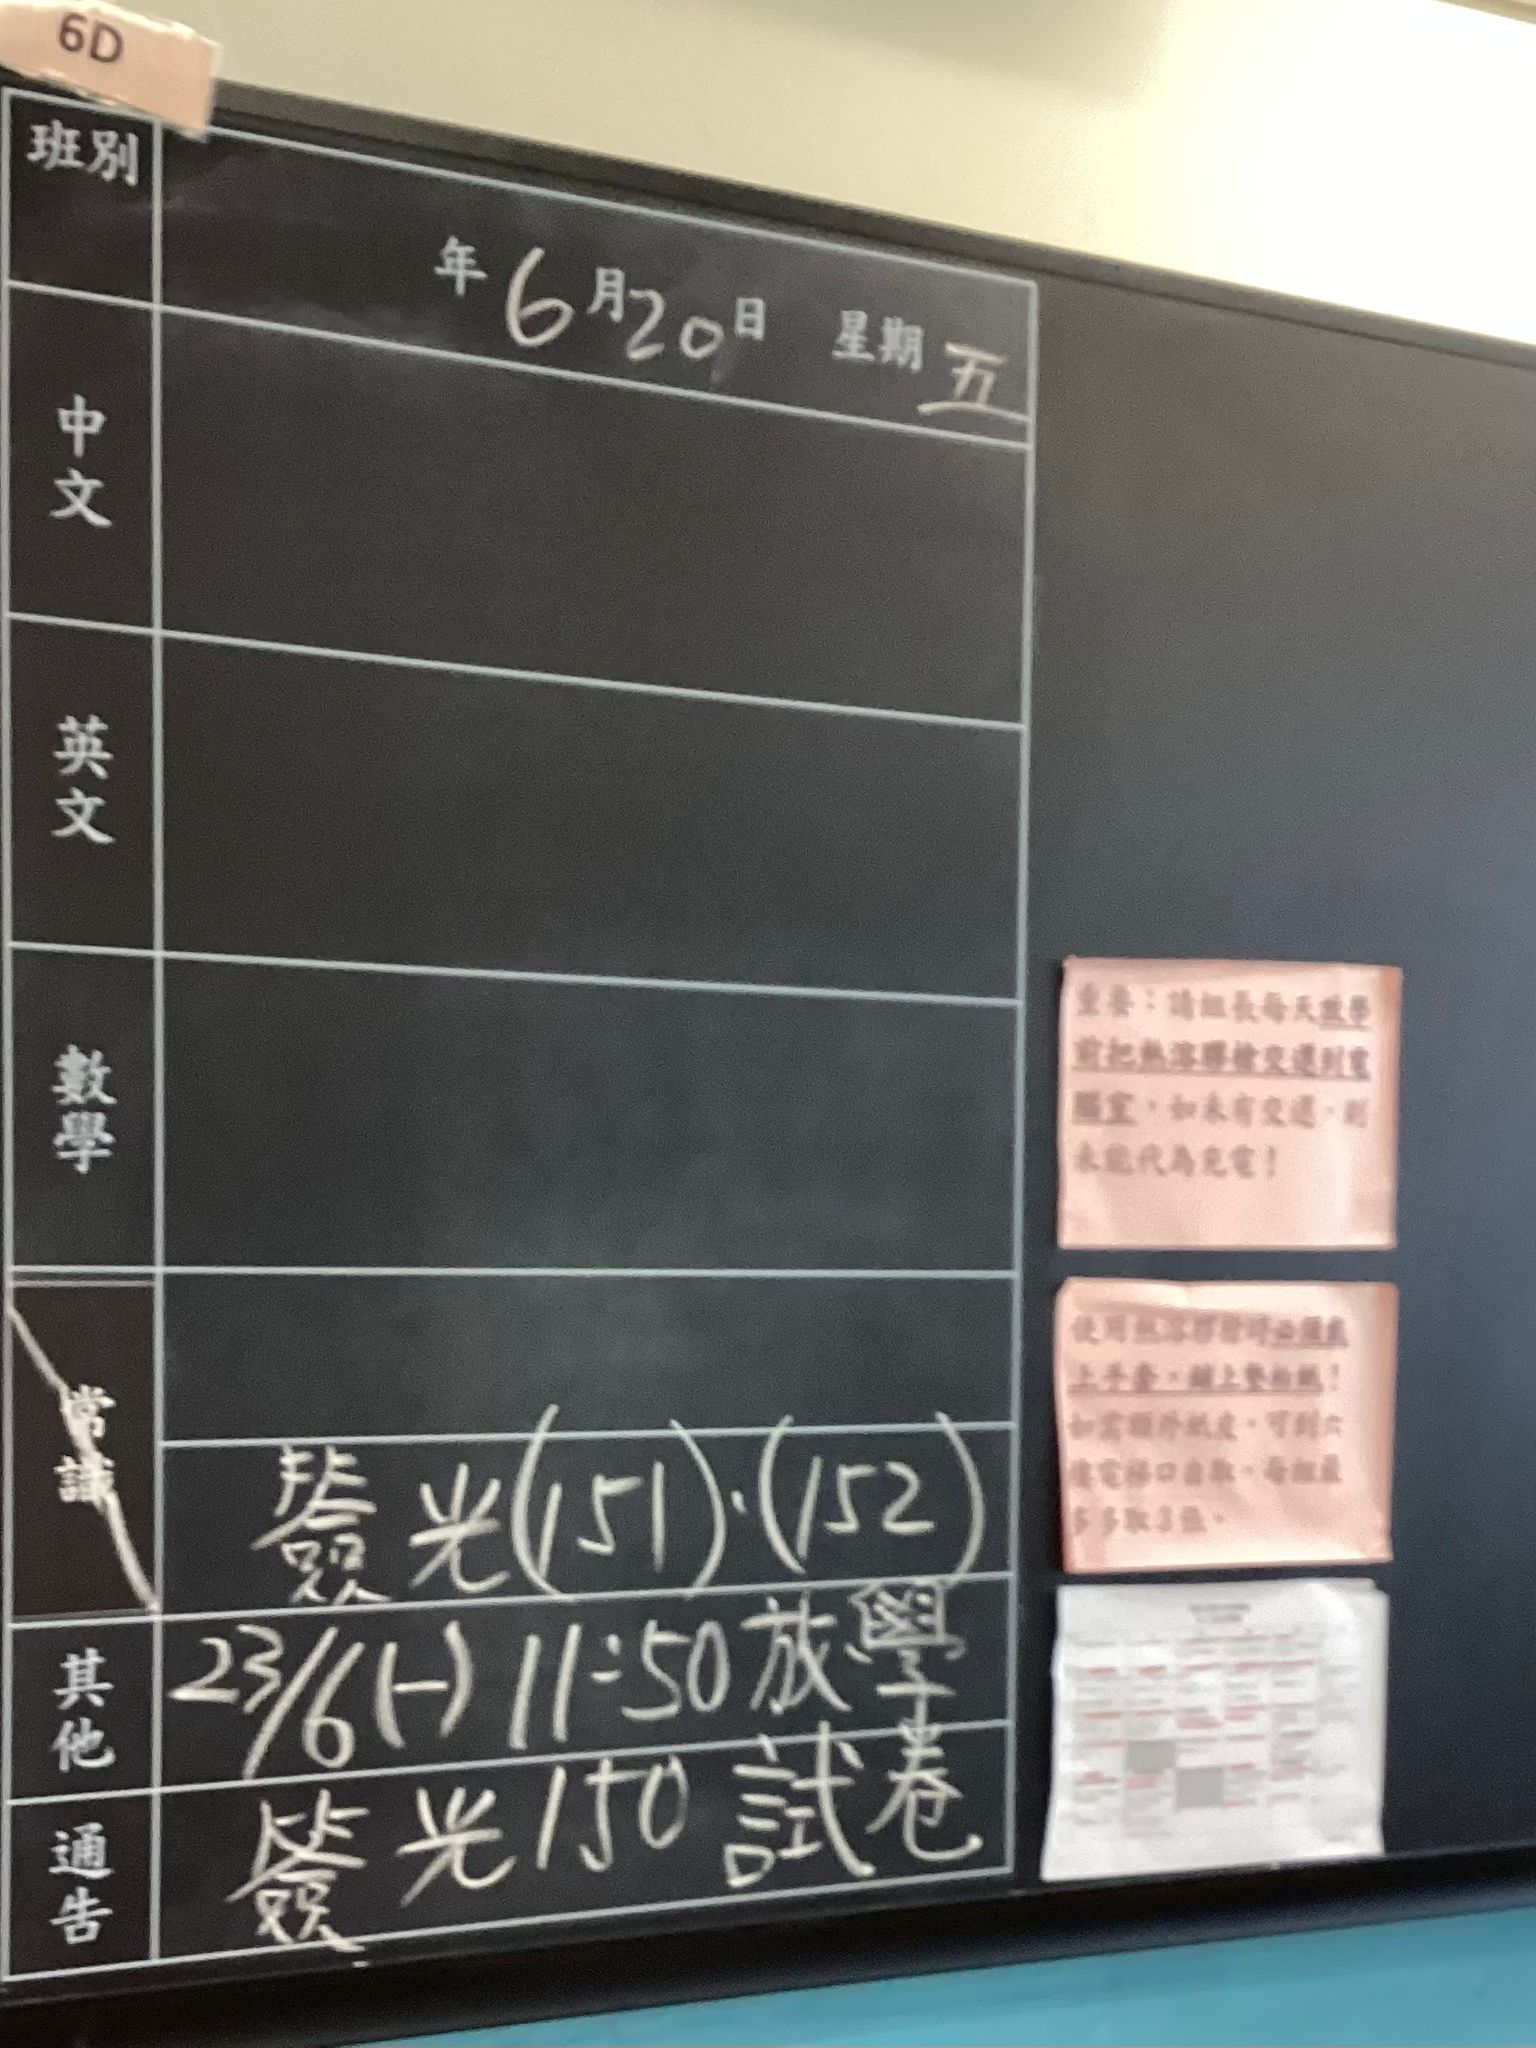 6D
班別
年6月20日 星期五
中文
英文
數學
常識
簽光(151)、(152)
其他
23/6(一) 11:50放學
通告
簽光150 試卷
重要：請組長每天放學
前把熱溶膠槍交還到電
腦室，如未有交還，則
未能代為充電！
使用熱溶膠槍時必須戴
上手套，鋪上墊枱紙！
如需額外紙皮，可到六
樓電梯口自取，每組最
多取3張。